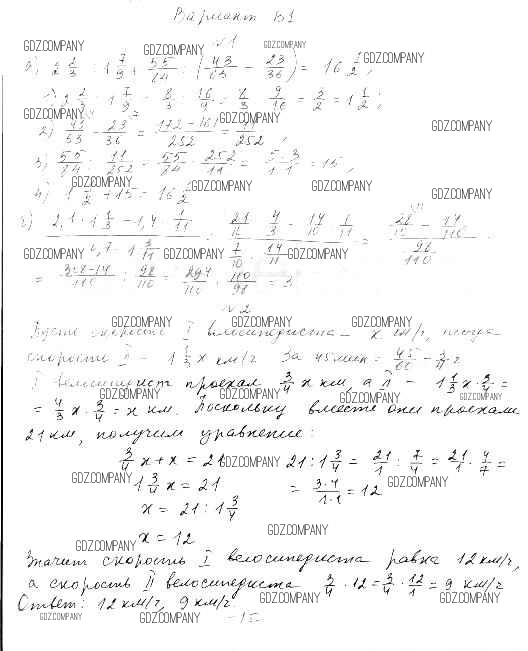 Вариант Б1
№1
а) 2 2/3 : 1 7/9 + 55/84 : (43/63 - 23/36) = 16 1/2;
1) 2 2/3 : 1 7/9 = 8/3 : 16/9 = 8/3 · 9/16 = 3/2 = 1 1/2;
2) 43/63 - 23/36 = (172-161)/252 = 11/252;
3) 55/84 : 11/252 = 55/84 · 252/11 = 5·3/1·1 = 15;
4) 1 1/2 + 15 = 16 1/2
= (308-14)/110 : 98/110 = 294/110 · 110/98 = 3
№2
Пусть скорость I велосипедиста – x км/ч, тогда
скорость II – 1 1/3 x км/ч. За 45 мин = 45/60 = 3/4 ч
I велосипедист проехал 3/4 x км, а II – 1 1/3 x · 3/4 =
= 4/3 x · 3/4 = x км. Поскольку вместе они проехали
21 км, получим уравнение:
3/4 x + x = 21 21 : 1 3/4 = 21/1 : 7/4 = 21/1 · 4/7 =
1 3/4 x = 21 = 3·4/1·1 = 12
x = 21 : 1 3/4
x = 12
Значит скорость I велосипедиста равна 12 км/ч,
а скорость II велосипедиста 3/4 · 12 = 3/4 · 12/1 = 9 км/ч
Ответ: 12 км/ч, 9 км/ч.
GDZ.COMPANY